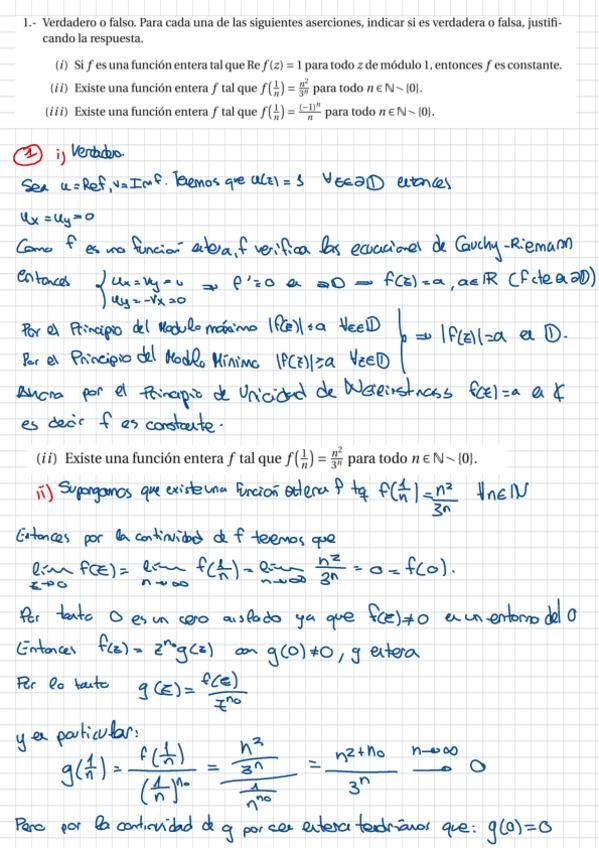 1.- Verdadero o falso. Para cada una de las siguientes aserciones, indicar si es verdadera o falsa, justifi-
cando la respuesta.
(i) Si f es una función entera tal que Re f(z) = 1 para todo z de módulo 1, entonces f es constante.
(ii) Existe una función entera f tal que f(1/n) = n²/3ⁿ para todo n ∈ ℕ∖{0}.
(iii) Existe una función entera f tal que f(1/n) = (−1)ⁿ/n para todo n ∈ ℕ∖{0}.
① i) Verdadero.
Sea u = Ref, v = Imf. Tenemos que u(z) = 1 ∀z∈∂𝔻 entonces
ux = uy = 0
Como f es una función entera, f verifica las ecuaciones de Cauchy-Riemann
entonces { ux = vy = 0 uy = -vx = 0 ⇒ f' = 0 en ∂D ⇒ f(z) = a, a∈ℝ (f cte en ∂D)
Por el Principio del Modulo máximo |f(z)| ≤ a ∀z∈𝔻
Por el Principio del Modulo Mínimo |f(z)| ≥ a ∀z∈𝔻 } ⇒ |f(z)| = a en 𝔻.
Ahora por el Principio de Unicidad de Weierstrass f(z) = a en ℂ
es decir f es constante.
(ii) Existe una función entera f tal que f(1/n) = n²/3ⁿ para todo n ∈ ℕ∖{0}.
ii) Supongamos que existe una función entera f tq f(1/n) = n²/3ⁿ ∀n∈ℕ
Entonces por la continuidad de f tenemos que
lim z→0 f(z) = lim n→∞ f(1/n) = lim n→∞ n²/3ⁿ = 0 = f(0).
Por tanto 0 es un cero aislado ya que f(z) ≠ 0 en un entorno del 0
Entonces f(z) = z^n₀ g(z) con g(0) ≠ 0, g entera
Por lo tanto g(z) = f(z)/z^n₀
y en particular:
g(1/n) = f(1/n)/(1/n)^n₀ = (n²/3ⁿ)/(1/n^n₀) = n^(2+n₀)/3ⁿ n→∞ ⟶ 0
Pero por la continuidad de g por ser entera tendríamos que: g(0) = 0